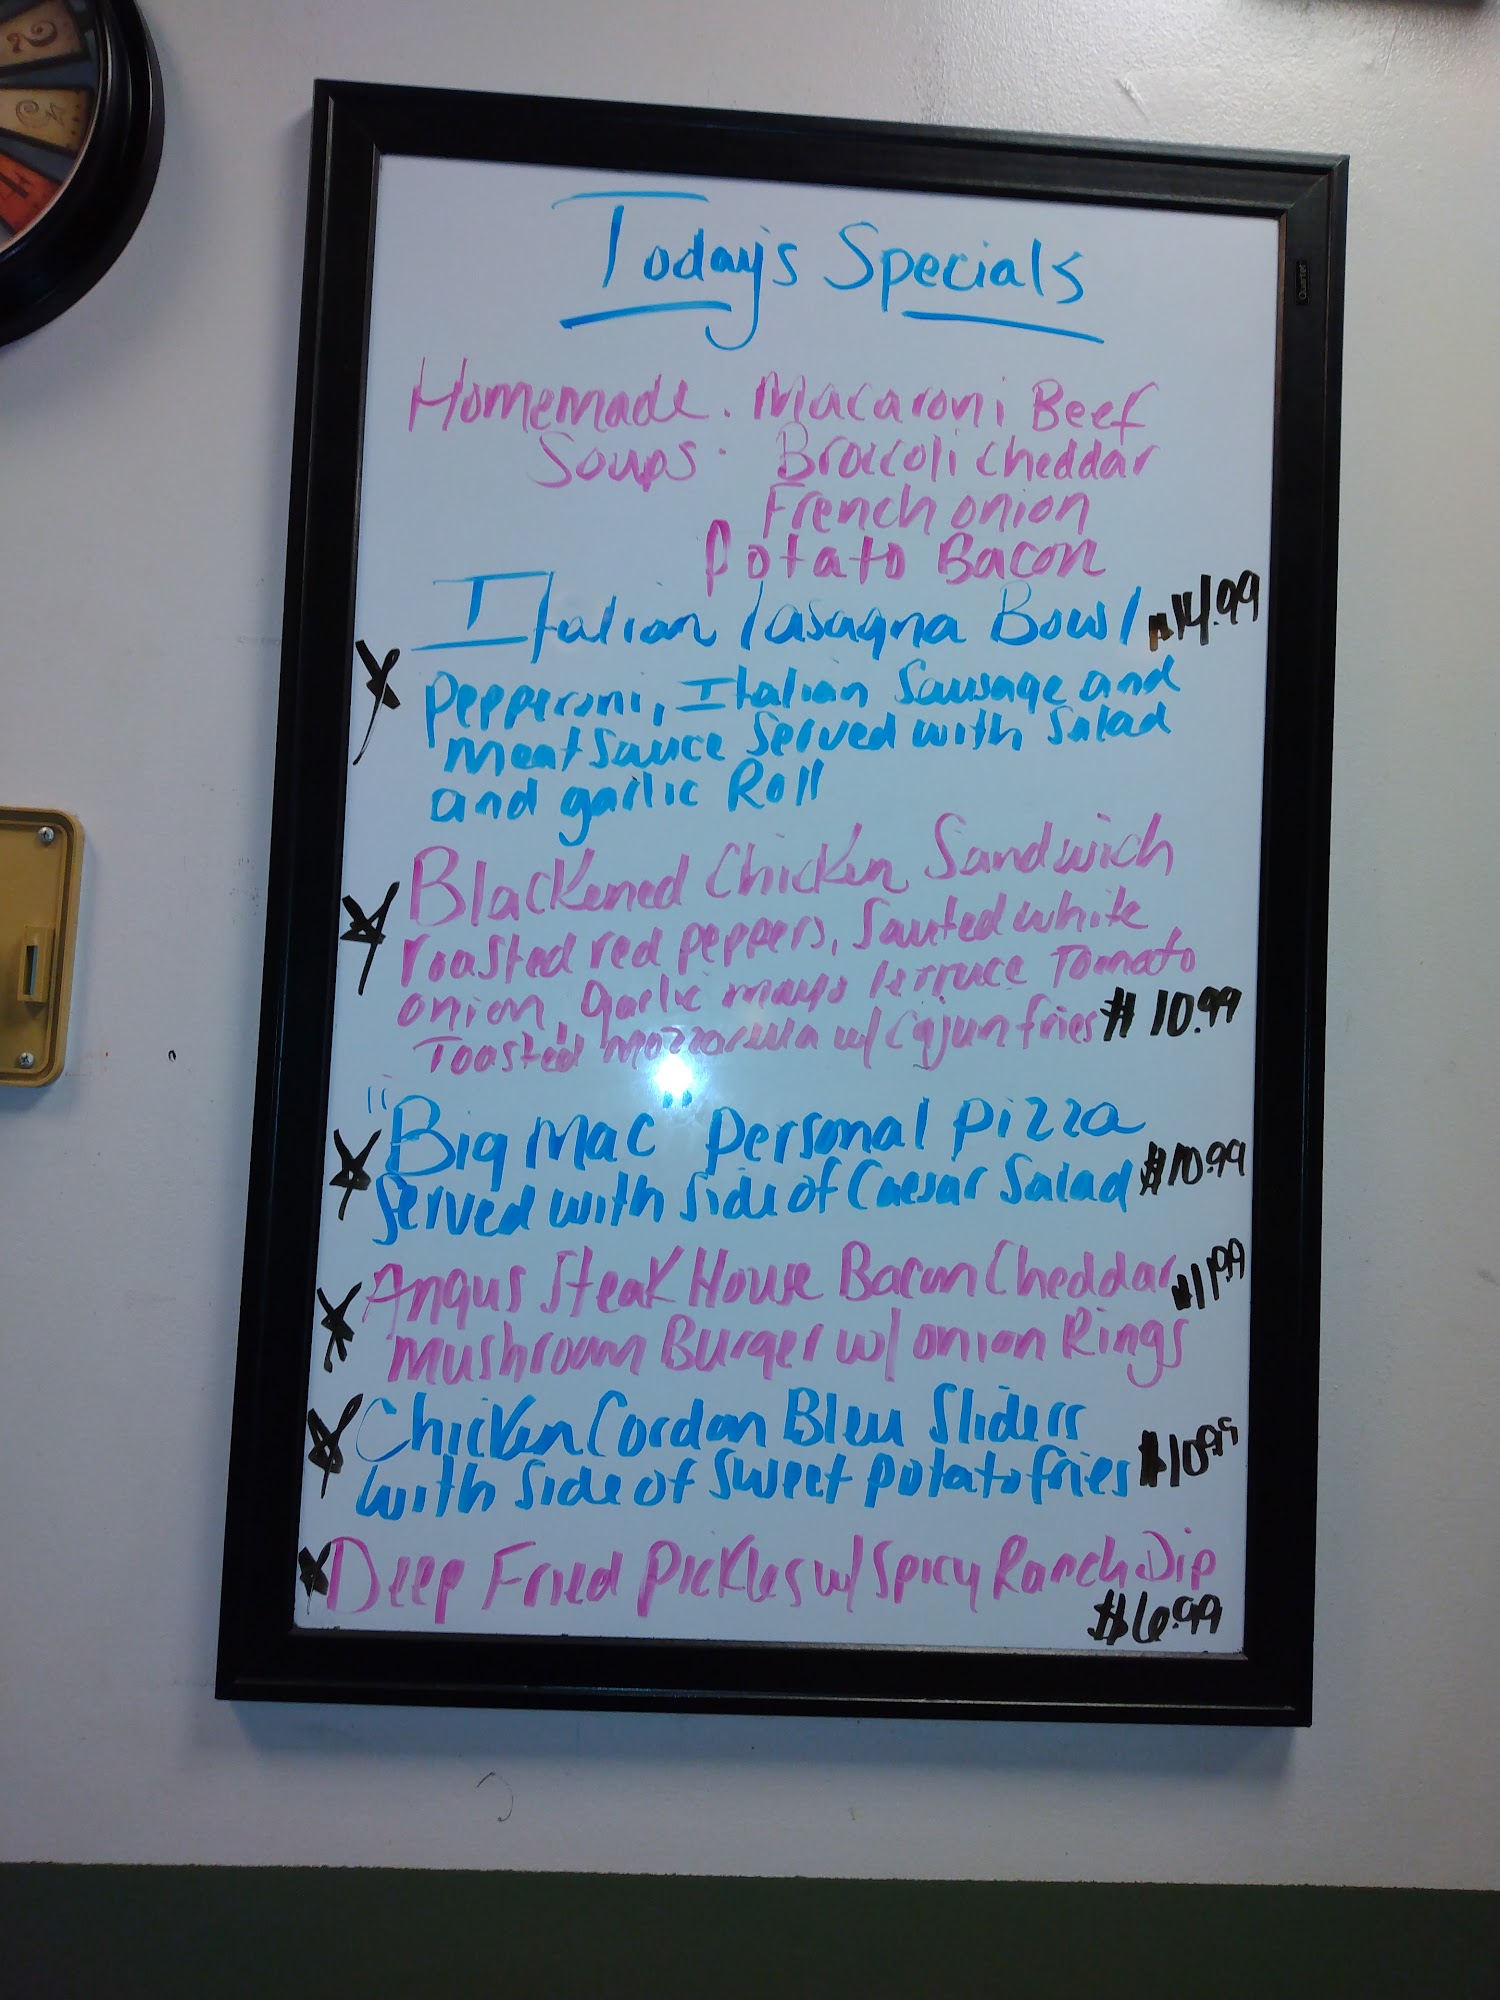 Today's Specials
Homemade. Macaroni Beef
Soups. Broccoli cheddar
French onion
Potato Bacon
Italian lasagna Bowl $14.99
Pepperoni, Italian Sausage and
meat sauce Served with Salad
and garlic Roll
Blackened Chicken Sandwich
roasted red peppers, Sauted white
onion, garlic mayo lettuce Tomato
Toasted mozzarella w/ Cajun fries $10.99
"Big Mac" personal pizza
Served with side of Caesar Salad $10.99
Angus Steak House Bacon Cheddar $11.99
mushroom Burger w/ onion Rings
Chicken Cordon Bleu Sliders
with side of sweet potato fries $10.99
Deep Fried Pickles w/ Spicy Ranch Dip
$6.99